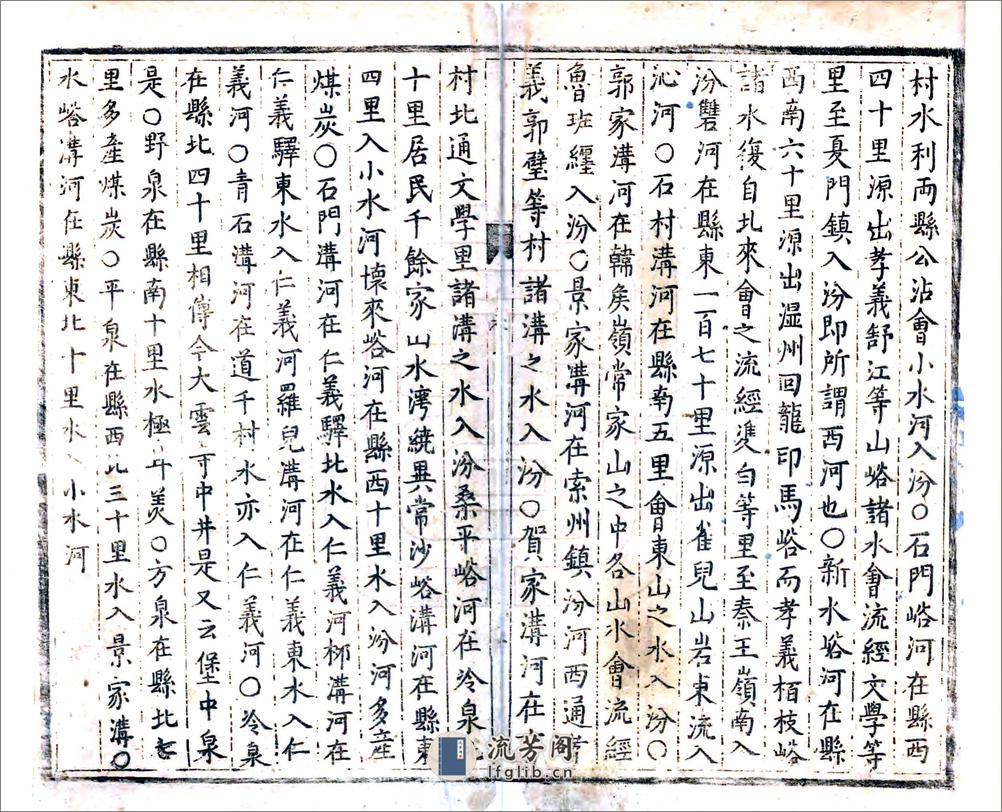 村水利両縣公沾會小水河入汾○石門峪河在縣西
四十里源出孝義舒江等山峪諸水會流經文學等
里至夏門鎮入汾即所謂西河也○新水峪河在縣
西南六十里源出温州回龍印馬峪而孝義栢枝峪
諸水復自北來會之流經雙白等里至秦王嶺南入
汾雙河在縣東一百七十里源出雀兒山岩東流入
沁河○石村溝河在縣南五里會東山之水入汾○
郭家溝河在韓矦嶺常家山之中各山水會流經
魯班纏入汾○景家溝河在索州鎮汾河西通
義郭壁等村諸溝之水入汾○賀家溝河在
村北通文學里諸溝之水入汾桑平峪河在冷泉
十里居民千餘家山水湾繞異常沙峪溝河在縣東
四里入小水河懐來峪河在縣西十里水入汾河多産
煤炭○石門溝河在仁義驛北水入仁義河栁溝河在
仁義驛東水入仁義河羅兒溝河在仁義東水入仁
義河○青石溝河在道千村水亦入仁義河○冷泉
在縣北四十里相傳今大雲寺中井是又云堡中泉
是○野泉在縣南十里水極甘美○方泉在縣北七
里多産煤炭○平泉在縣西北三十里水入景家溝○
水峪溝河在縣東北十里水入小水河
流芳阁
lfglib.cn